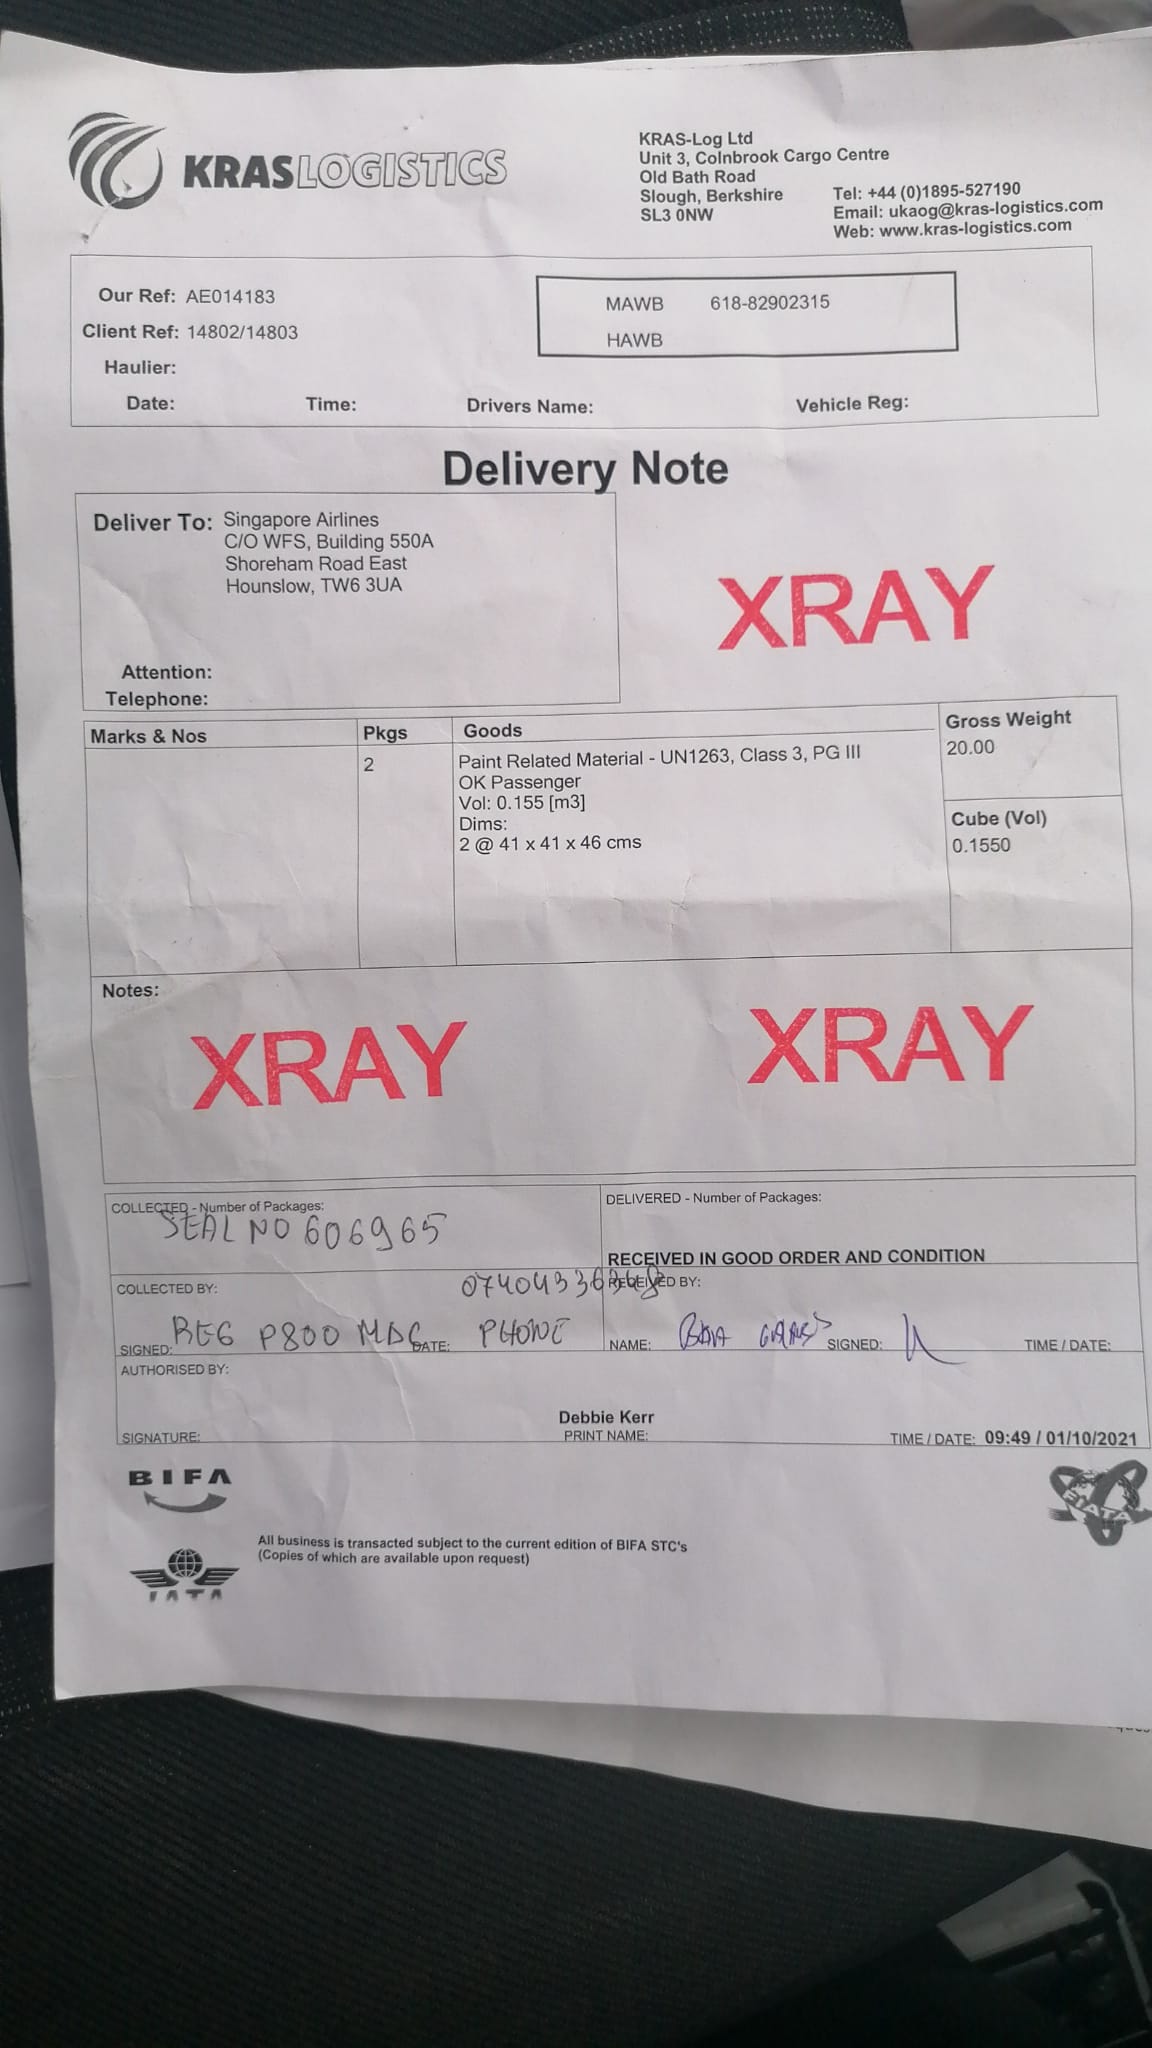 KRASLOGISTICS
KRAS-Log Ltd
Unit 3, Colnbrook Cargo Centre
Old Bath Road
Slough, Berkshire
SL3 0NW
Tel: +44 (0)1895-527190
Email: ukaog@kras-logistics.com
Web: www.kras-logistics.com
Our Ref: AE014183
Client Ref: 14802/14803
Haulier:
MAWB 618-82902315
HAWB
Date: Time: Drivers Name: Vehicle Reg:
Delivery Note
Deliver To: Singapore Airlines
C/O WFS, Building 550A
Shoreham Road East
Hounslow, TW6 3UA
Attention:
Telephone:
XRAY
Marks & Nos Pkgs Goods Gross Weight
2 Paint Related Material - UN1263, Class 3, PG III 20.00
OK Passenger
Vol: 0.155 [m3]
Dims:
2 @ 41 x 41 x 46 cms
Cube (Vol)
0.1550
Notes:
XRAY XRAY
COLLECTED - Number of Packages:
SEAL NO 606965
DELIVERED - Number of Packages:
RECEIVED IN GOOD ORDER AND CONDITION
COLLECTED BY: RECEIVED BY:
SIGNED: REG P800 DATE: PHONE
NAME: SIGNED: TIME / DATE:
AUTHORISED BY:
Debbie Kerr
SIGNATURE: PRINT NAME: TIME / DATE: 09:49 / 01/10/2021
BIFA
FIATA
All business is transacted subject to the current edition of BIFA STC's
(Copies of which are available upon request)
IATA